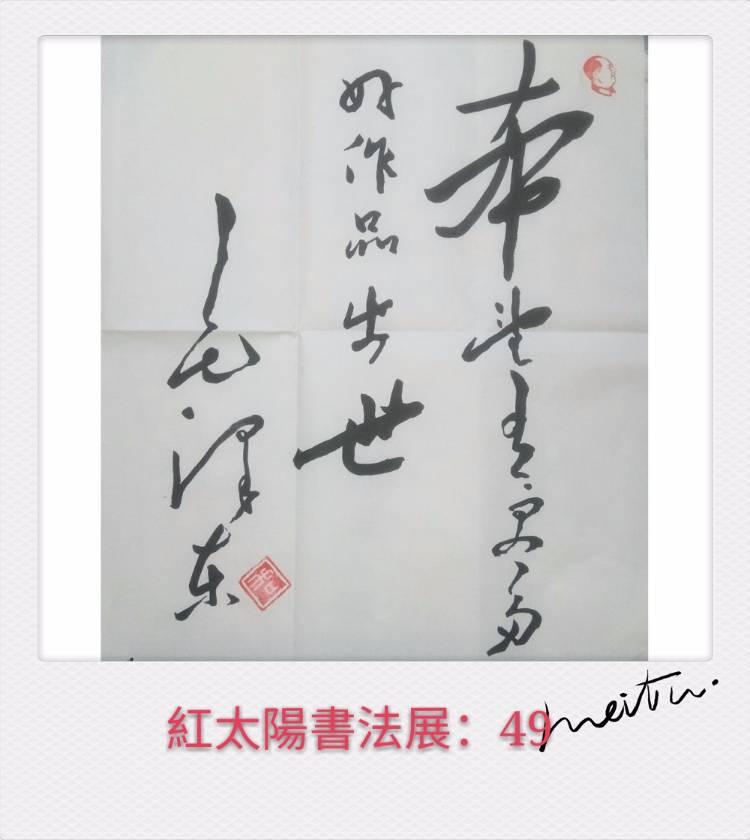 希望有更多
好作品出世
毛泽东
紅太陽書法展：49
meitu.